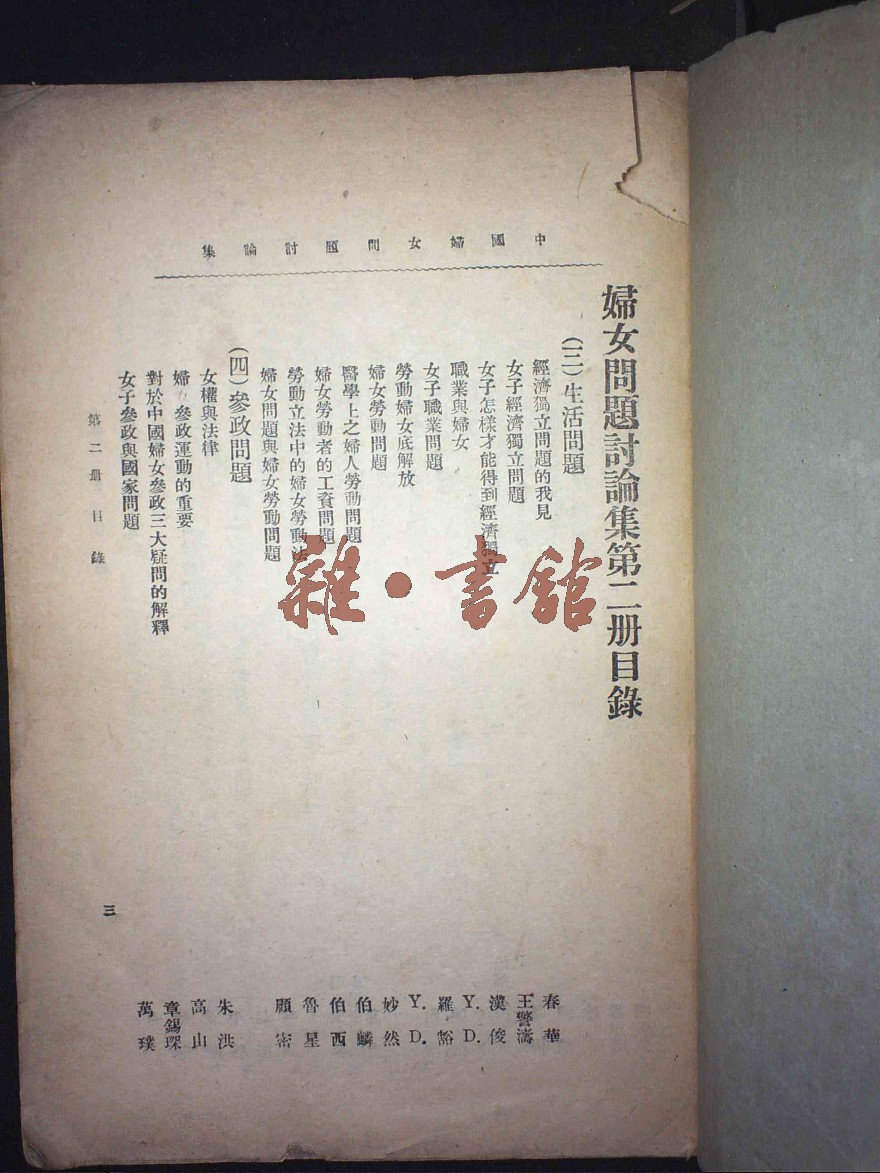 中國婦女問題討論集
婦女問題討論集第二册目錄
(三)生活問題
經濟獨立問題的我見 春華
女子經濟獨立問題 王警濤
女子怎樣才能得到經濟獨立 漢俊
職業與婦女 Y. D.
女子職業問題 羅豁
勞動婦女底解放 Y. D.
婦女勞動問題 妙然
醫學上之婦人勞動問題 伯麟
婦女勞動者的工資問題 伯西
勞動立法中的婦女勞動法 魯星
婦女問題與婦女勞動問題 顧密
(四)參政問題
女權與法律 朱洪
婦女參政運動的重要 高山
對於中國婦女參政三大疑問的解釋 章錫琛
女子參政與國家問題 萬璞
第二册目錄
三
雜·書館